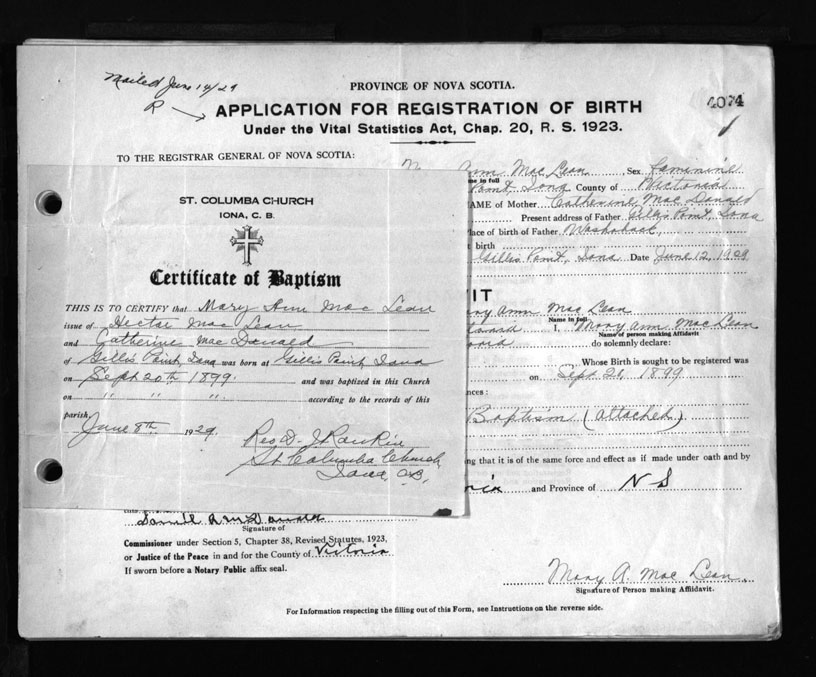 Mailed June 14/29
R
PROVINCE OF NOVA SCOTIA.
APPLICATION FOR REGISTRATION OF BIRTH
4074
Under the Vital Statistics Act, Chap. 20, R. S. 1923.
TO THE REGISTRAR GENERAL OF NOVA SCOTIA:
Ann Mac Lean, Sex Feminine
me in full
Point, Iona County of Victoria
AME of Mother Catherine Mac Donald
Present address of Father Gillis Point, Iona
Place of birth of Father Washabuck,
t birth
Gillis Point, Iona Date June 12, 1929
VIT
ary Ann Mac Lean
Name in full
I, Mary Ann Mac Lean
Name of person making Affidavit
do solemnly declare:
Whose Birth is sought to be registered was
on Sept 20, 1899
nces:
Baptism (attached)
ng that it is of the same force and effect as if made under oath and by
ria and Province of N S
ST. COLUMBA CHURCH
IONA, C. B.
Certificate of Baptism
THIS IS TO CERTIFY that Mary Ann Mac Lean
issue of Hector Mac Lean
and Catherine Mac Donald
of Gillis Point, Iona was born at Gillis Point Iona
on Sept 20th 1899. and was baptized in this Church
on " " " according to the records of this
parish.
June 8th 1929
Rev D. J Rankin
St Columba Church,
Iona, C.B.
Signature of
Commissioner under Section 5, Chapter 38, Revised Statutes, 1923,
or Justice of the Peace in and for the County of Victoria
If sworn before a Notary Public affix seal.
Mary A. Mac Lean
Signature of Person making Affidavit.
For Information respecting the filling out of this Form, see Instructions on the reverse side.